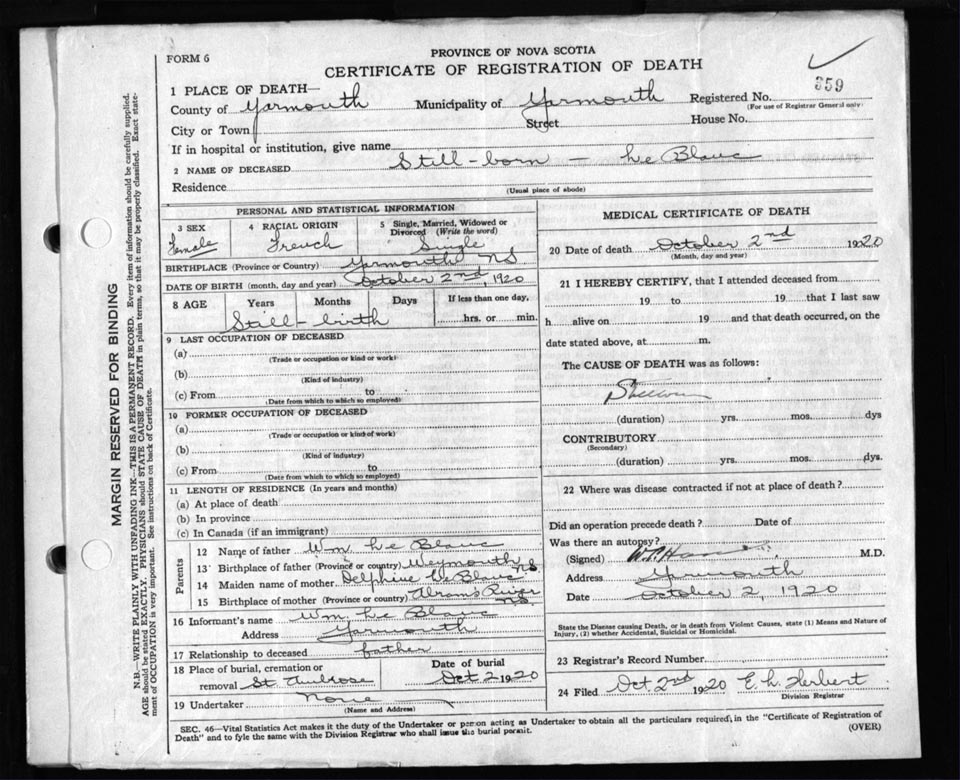 PROVINCE OF NOVA SCOTIA
FORM 6
CERTIFICATE OF REGISTRATION OF DEATH
359
1 PLACE OF DEATH—
County of Yarmouth Municipality of Yarmouth Registered No.
(For use of Registrar General only)
City or Town Street House No.
If in hospital or institution, give name
2 NAME OF DECEASED Still-born — Le Blanc
Residence
(Usual place of abode)
PERSONAL AND STATISTICAL INFORMATION
3 SEX Female
4 RACIAL ORIGIN French
5 Single, Married, Widowed or Divorced (Write the word) Single
BIRTHPLACE (Province or Country) Yarmouth NS
DATE OF BIRTH (month, day and year) October 2nd, 1920
8 AGE Years Months Days If less than one day,
Still-birth hrs. or min.
9 LAST OCCUPATION OF DECEASED
(a)
(Trade or occupation or kind or work)
(b)
(Kind of industry)
(c) From to
(Date from which to which so employed)
10 FORMER OCCUPATION OF DECEASED
(a)
(Trade or occupation or kind of work)
(b)
(Kind of industry)
(c) From to
(Date from which to which so employed)
11 LENGTH OF RESIDENCE (In years and months)
(a) At place of death
(b) In province
(c) In Canada (if an immigrant)
Parents
12 Name of father Wm. Le Blanc
13 Birthplace of father (Province or country) Weymouth NS
14 Maiden name of mother Delphine Le Blanc
15 Birthplace of mother (Province or country) Abrams River NS.
16 Informant's name Wm. Le Blanc
Address Yarmouth
17 Relationship to deceased father
18 Place of burial, cremation or Date of burial
removal St. Ambrose Oct 2 1920
19 Undertaker None
(Name and Address)
MEDICAL CERTIFICATE OF DEATH
20 Date of death October 2nd 1920
(Month, day and year)
21 I HEREBY CERTIFY, that I attended deceased from
19 to 19 that I last saw
h alive on 19 and that death occurred, on the
date stated above, at m.
The CAUSE OF DEATH was as follows:
Stillborn
(duration) yrs. mos. dys
CONTRIBUTORY
(Secondary)
(duration) yrs. mos. dys.
22 Where was disease contracted if not at place of death?
Did an operation precede death? Date of
Was there an autopsy?
(Signed) M.D.
Address Yarmouth
Date October 2, 1920
State the Disease causing Death, or in death from Violent Causes, state (1) Means and Nature of
Injury, (2) whether Accidental, Suicidal or Homicidal.
23 Registrar's Record Number
24 Filed Oct. 2nd 1920 E. L. Herbert
Division Registrar
SEC. 46—Vital Statistics Act makes it the duty of the Undertaker or person acting as Undertaker to obtain all the particulars required, in the "Certificate of Registration of
Death" and to fyle the same with the Division Registrar who shall issue the burial permit. (OVER)
MARGIN RESERVED FOR BINDING
N.B.—WRITE PLAINLY WITH UNFADING INK—THIS IS A PERMANENT RECORD. Every item of information should be carefully supplied.
AGE should be stated EXACTLY. PHYSICIANS should STATE CAUSE OF DEATH in plain terms, so that it may be properly classified. Exact state-
ment of OCCUPATION is very important. See instructions on back of Certificate.